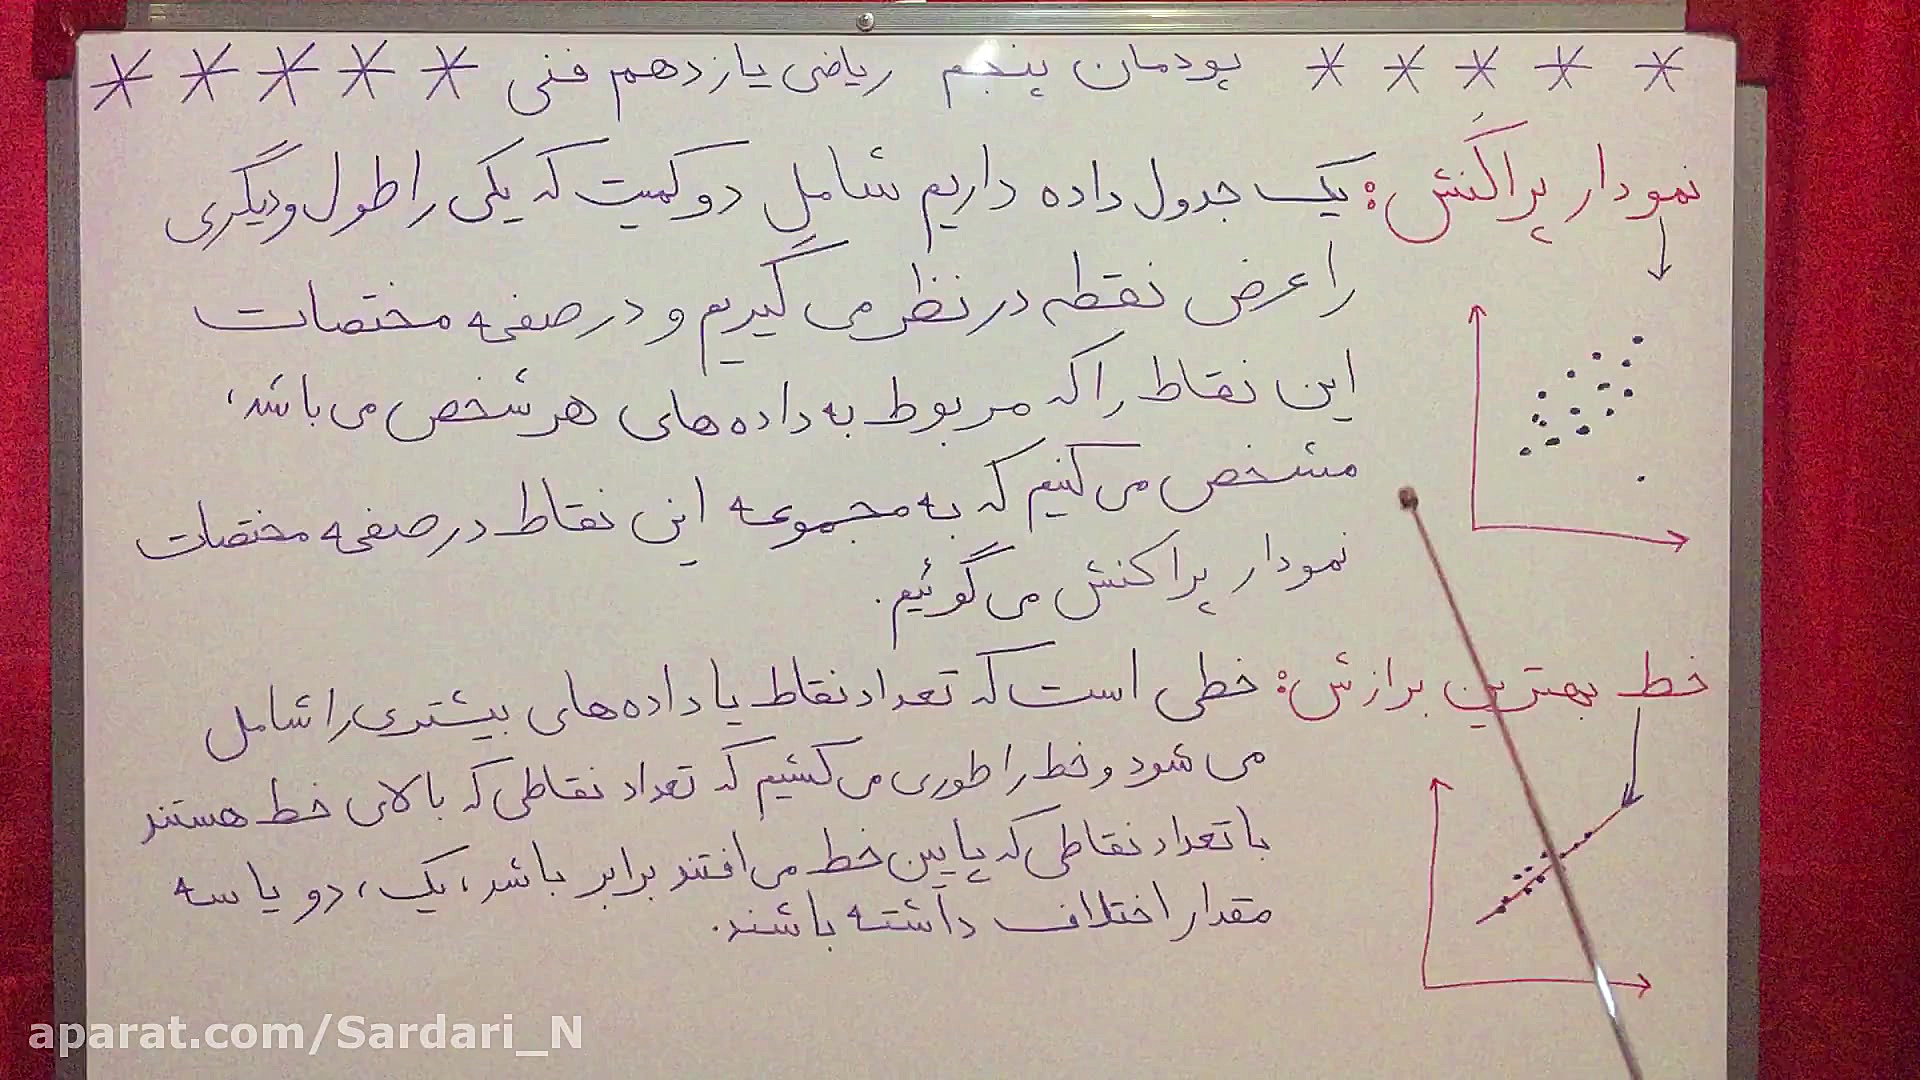 پودمان پنجم ریاضی یازدهم فنی
نمودار پراکنش: یک جدول داده داریم شامل دو کمیت که یکی را طول و دیگری
را عرض نقطه در نظر می گیریم و در صفحه مختصات
این نقاط را که مربوط به داده های هر شخص می باشد،
مشخص می کنیم که به مجموعه این نقاط در صفحه مختصات
نمودار پراکنش می گوئیم.
خط بهترین برازش: خطی است که تعداد نقاط یا داده های بیشتری را شامل
می شود و خط را طوری می کشیم که تعداد نقاطی که بالای خط هستند
با تعداد نقاطی که پایین خط می افتند برابر باشد، یک، دو یا سه
مقدار اختلاف داشته باشند.
aparat.com/Sardari_N